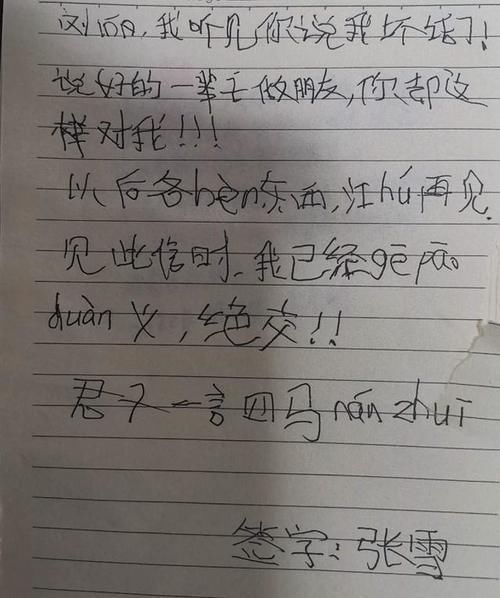 刘涵,我听见你说我坏话了!
说好的一辈子做朋友,你却这
样对我!!!
以后各bèn东西,江hú再见.
见此信时,我已经gē pāo
duàn义,绝交!!
君子一言四马nán zhuī
签字:张雪